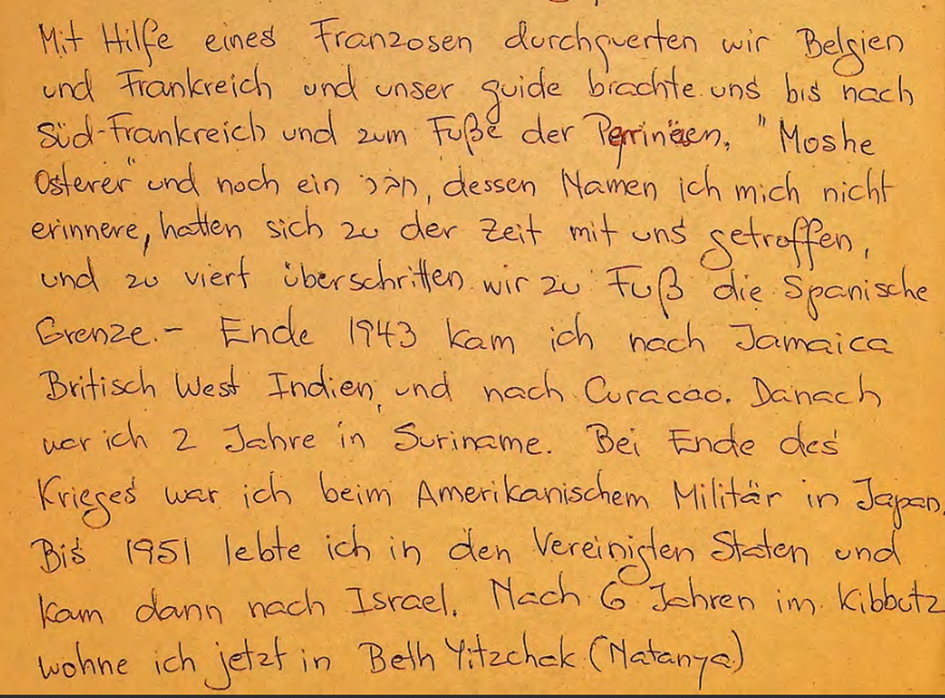 Mit Hilfe eines Franzosen durchquerten wir Belgien
und Frankreich und unser guide brachte uns bis nach
Süd-Frankreich und zum Fuße der Perrinäen. "Moshe
Osterer" und noch ein חבר, dessen Namen ich mich nicht
erinnere, hatten sich zu der Zeit mit uns getroffen,
und zu viert überschritten wir zu Fuß die Spanische
Grenze.- Ende 1943 kam ich nach Jamaica
Britisch West Indien, und nach Curacao. Danach
war ich 2 Jahre in Suriname. Bei Ende des
Krieges war ich beim Amerikanischem Militär in Japan.
Bis 1951 lebte ich in den Vereinigten Staten und
kam dann nach Israel. Nach 6 Jahren im Kibbutz
wohne ich jetzt in Beth Yitzchak (Natanya)